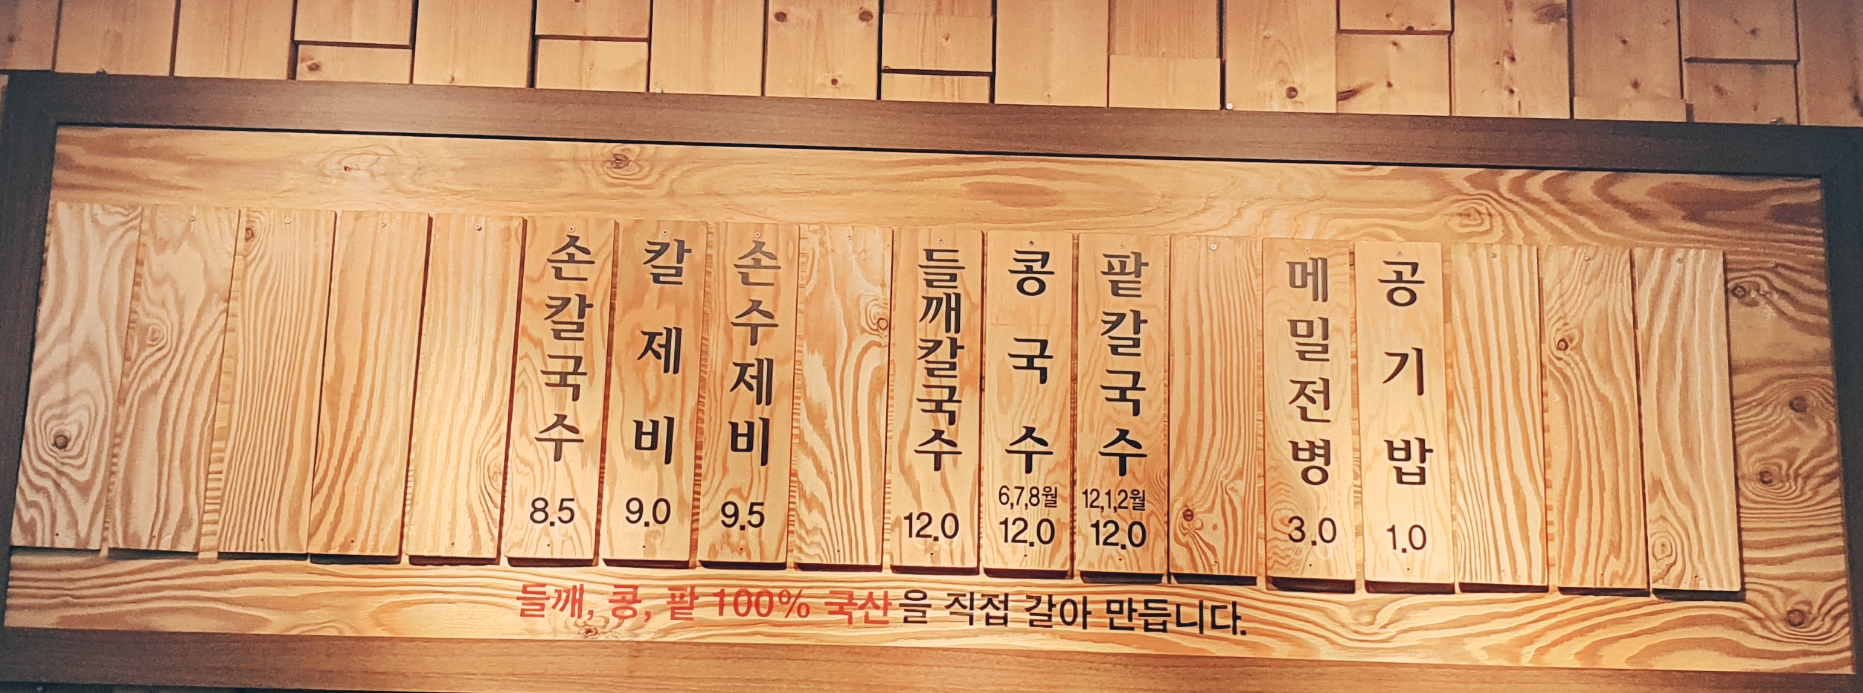 손칼국수
8.5
칼제비
9.0
손수제비
9.5
들깨칼국수
12.0
콩국수
6,7,8월
12.0
팥칼국수
12,1,2월
12.0
메밀전병
3.0
공기밥
1.0
들깨, 콩, 팥 100% 국산을 직접 갈아 만듭니다.